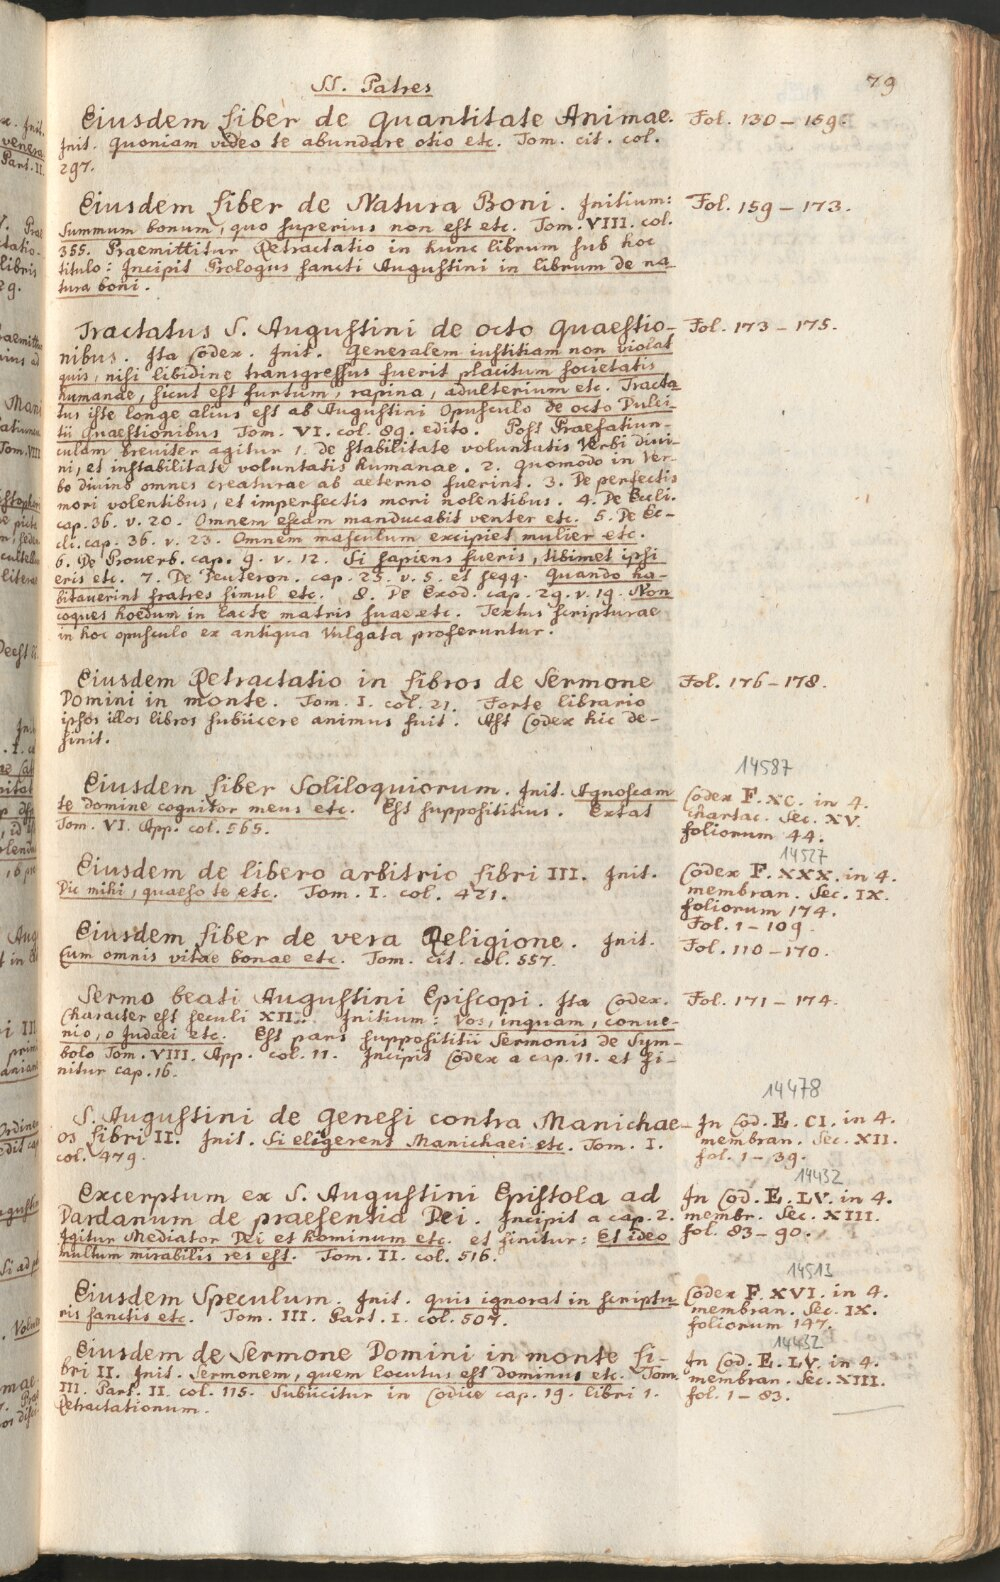 SS. Patres
79
Eiusdem Liber de Quantitate Animae. Fol. 130 – 159.
Init. Quoniam video te abundare otio etc. Tom. cit. col.
297.
Eiusdem Liber de Natura Boni. Initium: Fol. 159 – 173.
Summum bonum, quo superius non est etc. Tom. VIII. col.
355. Praemittitur Retractatio in hunc librum sub hoc
titulo: Incipit Prologus sancti Augustini in librum de na
tura boni.
Tractatus S. Augustini de octo Quaestio- Fol. 173 – 175.
nibus. Ita Codex. Init. Generalem iustitiam non violat
quis, nisi libidine transgressus fuerit placitum societatis
humanae, sicut est furtum, rapina, adulterium etc. Tracta
tus iste longe alius est ab Augustini Opusculo de octo Dulci-
tii Quaestionibus Tom. VI. col. 89. edito. Post Praefatiun-
culam breviter agitur 1. De stabilitate voluntatis Verbi divi-
ni, et instabilitate voluntatis humanae. 2. Quomodo in Ver-
bo divino omnes creaturae ab aeterno fuerint. 3. De perfectis
mori volentibus, et imperfectis mori nolentibus. 4. De Eccli.
cap. 36. v. 20. Omnem escam manducabit venter etc. 5. De Ec-
cli. cap. 36. v. 23. Omnem masculum excipiet mulier etc.
6. De Proverb. cap. 9. v. 12. Si sapiens fueris, tibimet ipsi
eris etc. 7. De Deuteron. cap. 25. v. 5. et seqq. Quando ha-
bitaverint fratres simul etc. 8. De Exod. cap. 29. v. 19. Non
coques hoedum in lacte matris suae etc. Textus scripturae
in hoc opusculo ex antiqua Vulgata proferuntur.
Eiusdem Retractatio in Libros de Sermone Fol. 176 – 178.
Domini in monte. Tom. I. col. 21. Forte librario
ipsos illos libros subiicere animus fuit. Ast Codex hic de-
sinit.
14587
Eiusdem Liber Soliloquiorum. Init. Agnoscam Codex F. XC. in 4.
te domine cognitor meus etc. Est supposititius. Extat chartac. Sec. XV.
Tom. VI. App. col. 565. foliorum 44.
14527
Eiusdem de libero arbitrio Libri III. Init. Codex F. XXX. in 4.
Dic mihi, quaeso te etc. Tom. I. col. 421. membran. Sec. IX.
foliorum 174.
Fol. 1 – 109.
Eiusdem Liber de vera Religione. Init. Fol. 110 – 170.
Cum omnis vitae bonae etc. Tom. cit. col. 557.
Sermo beati Augustini Episcopi. Ita Codex. Fol. 171 – 174.
Character est seculi XII. Initium: Vos, inquam, conve-
nio, o Iudaei etc. Est pars supposititii Sermonis de Sym-
bolo Tom. VIII. App. col. 11. Incipit Codex a cap. 11. et fi-
nitur cap. 16.
14478
S. Augustini de Genesi contra Manichae- In Cod. E. CI. in 4.
os Libri II. Init. Si eligerent Manichaei etc. Tom. I. membran. Sec. XII.
col. 479. fol. 1 – 39.
14432
Excerptum ex S. Augustini Epistola ad In Cod. E. LV. in 4.
Dardanum de praesentia Dei. Incipit a cap. 2. membr. Sec. XIII.
Igitur Mediator Dei et hominum etc. et finitur: Et ideo fol. 83 – 90.
multum mirabilis res est. Tom. II. col. 516.
14513
Eiusdem Speculum. Init. Quis ignorat in scriptu Codex F. XVI. in 4.
ris sanctis etc. Tom. III. Part. I. col. 507. membran. Sec. IX.
foliorum 147.
14432
Eiusdem de Sermone Domini in monte Li- In Cod. E. LV. in 4.
bri II. Init. Sermonem, quem locutus est dominus etc. Tom. membran. Sec. XIII.
III. Part. II. col. 115. Subiicitur in Codice cap. 19. libri 1. fol. 1 – 83.
Retractationum.